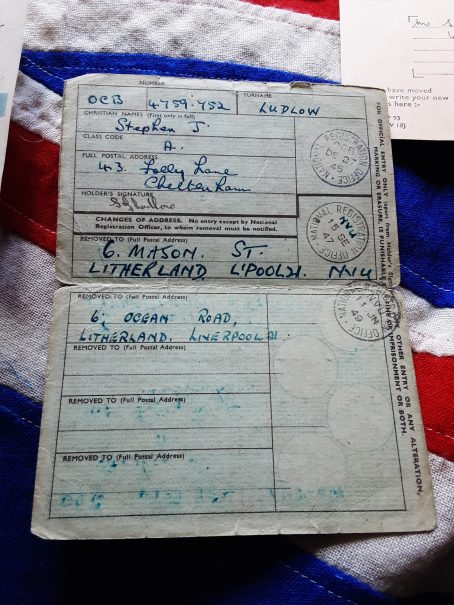 NUMBER
SURNAME
OCB 4759.452
LUDLOW
CHRISTIAN NAMES (First only in full)
Stephen J.
CLASS CODE
A.
FULL POSTAL ADDRESS
43. Folly Lane
Cheltenham
HOLDER'S SIGNATURE
CHANGES OF ADDRESS. No entry except by National
Registration Officer, to whom removal must be notified.
REMOVED TO (Full Postal Address)
6. MASON. ST.
LITHERLAND L'POOL 21. NVIU
REMOVED TO (Full Postal Address)
6, OCEAN ROAD,
LITHERLAND, LIVERPOOL 21.
REMOVED TO (Full Postal Address)
REMOVED TO (Full Postal Address)
REMOVED TO (Full Postal Address)
FOR OFFICIAL ENTRY ONLY
ANY OTHER ENTRY OR ANY ALTERATION,
MARKING OR ERASURE, IS PUNISHABLE
IMPRISONMENT OR BOTH.
NATIONAL REGISTRATION OFFICE
OCB
DE 27
45
NATIONAL REGISTRATION OFFICE
NVIU
15 DE
47
have moved
write your new
s here :-